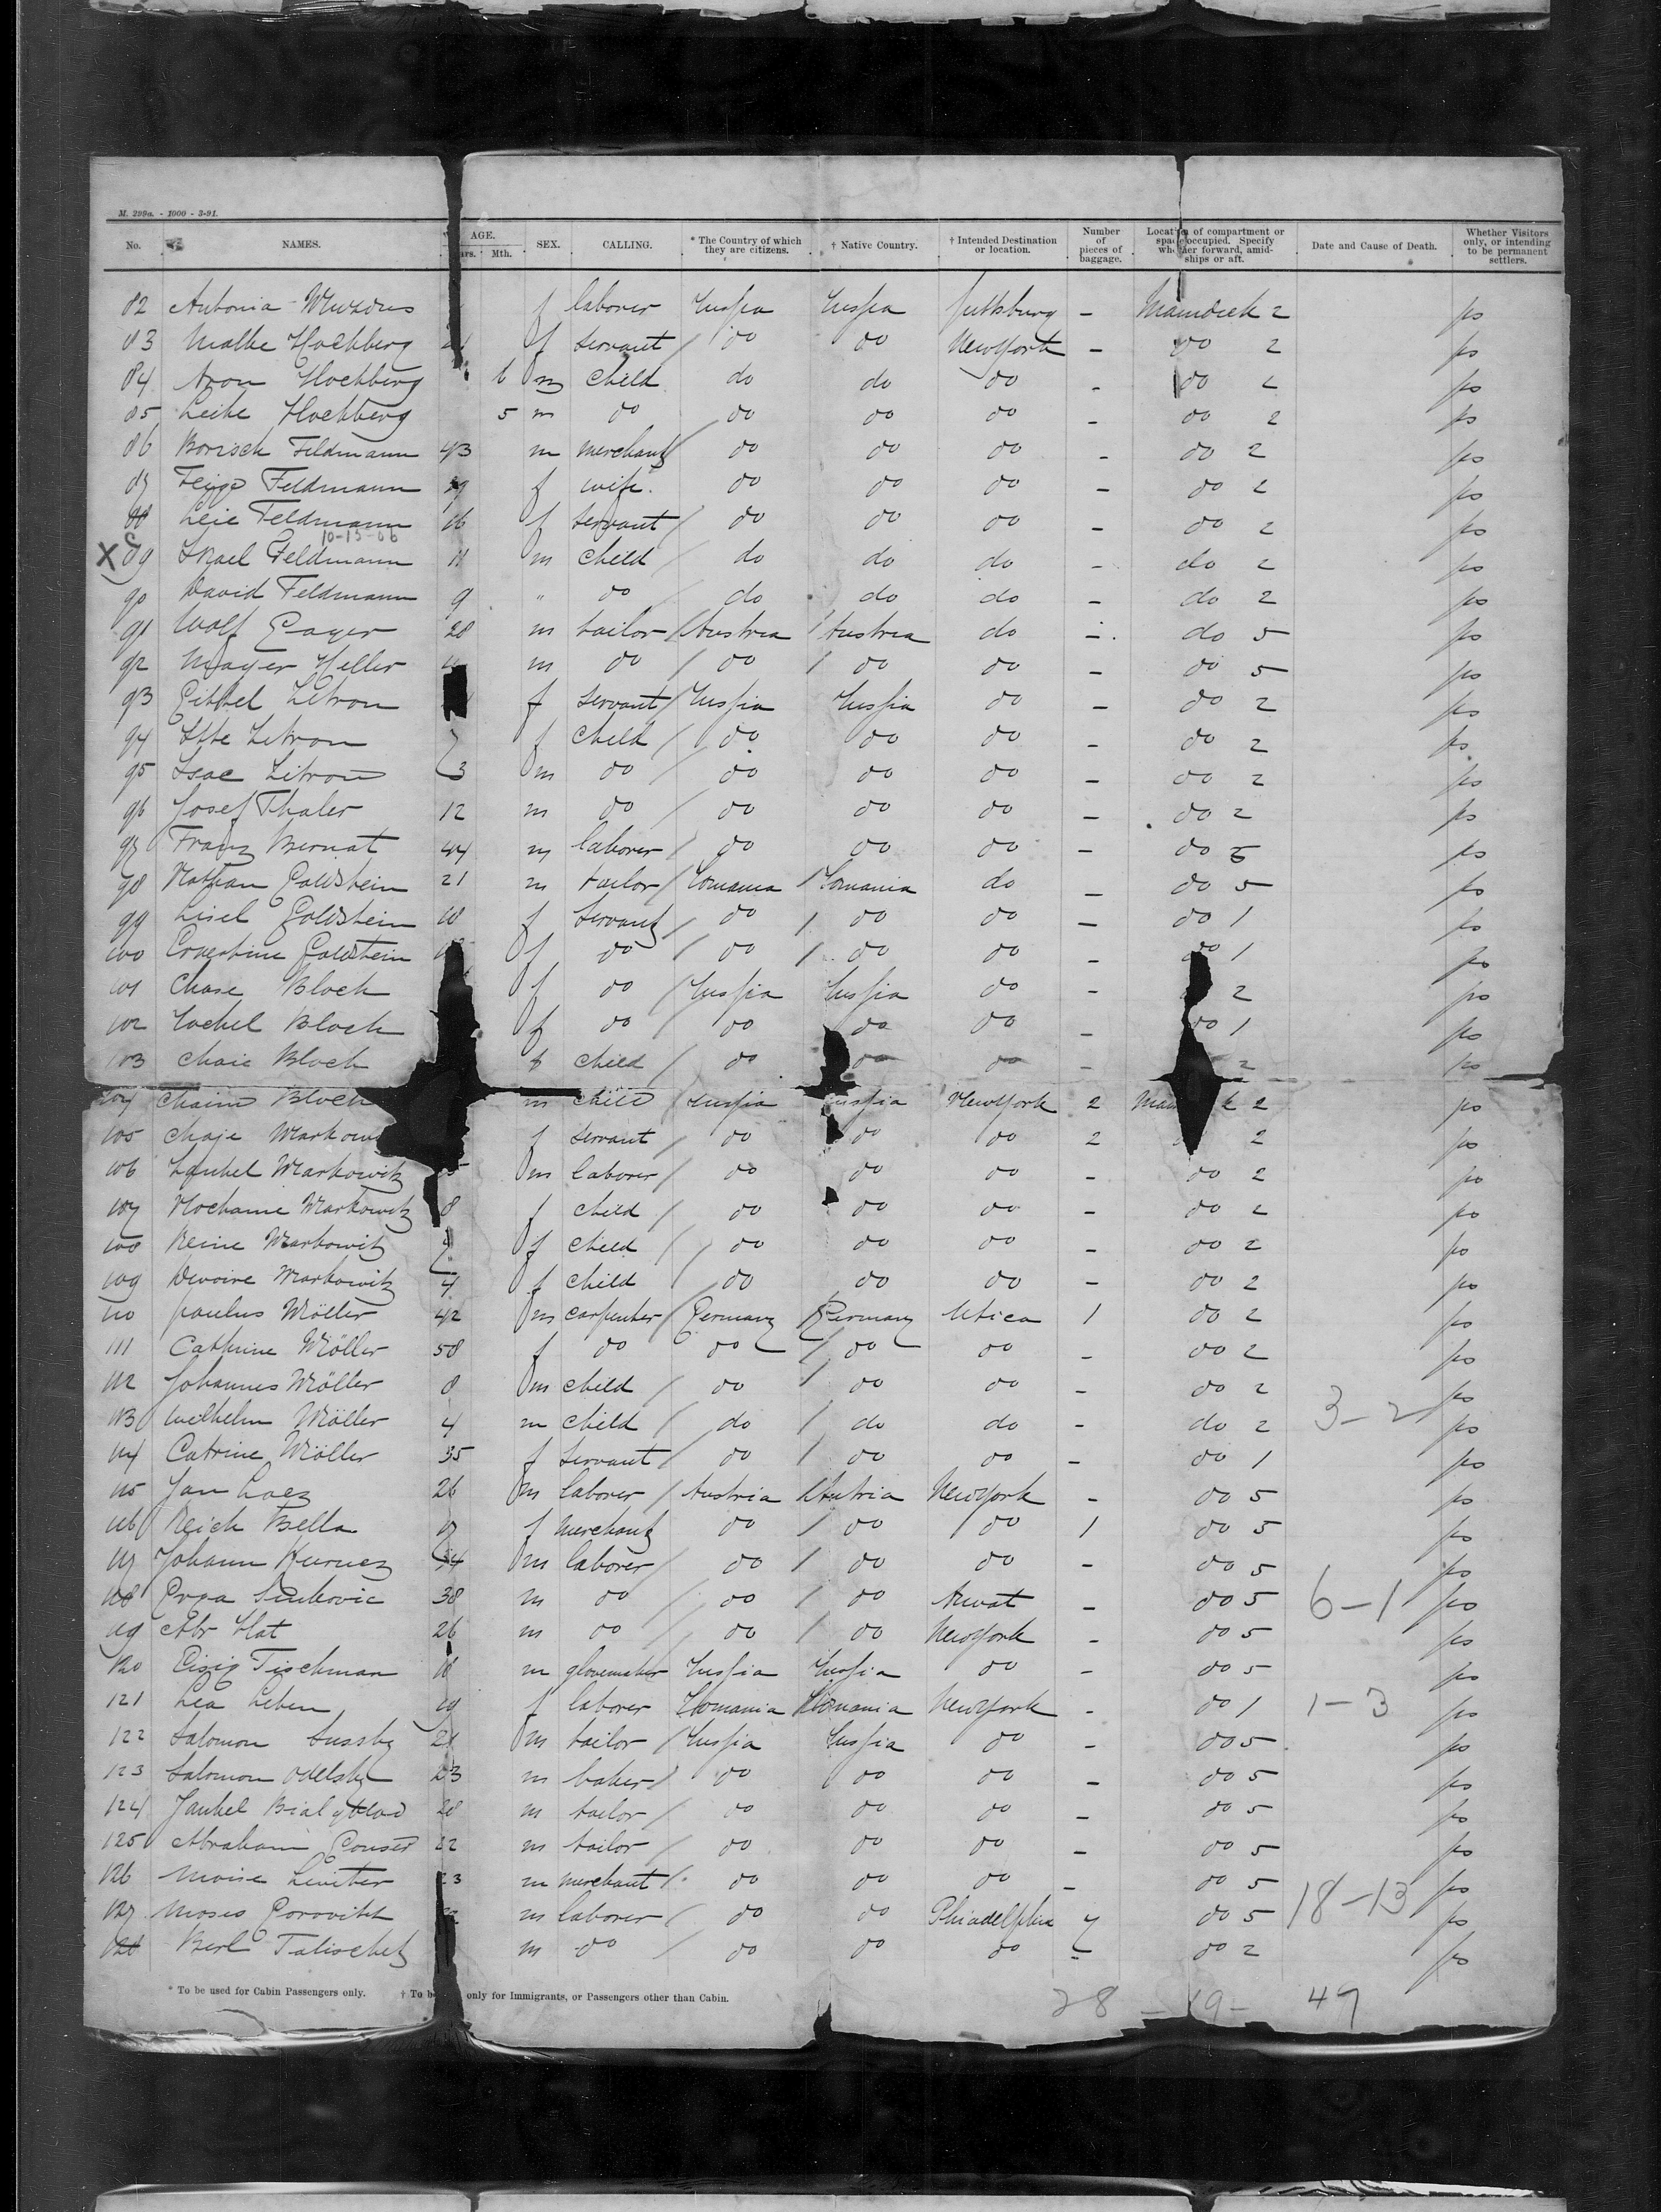 M. 299a. - 1000 - 3-91.
No. NAMES. AGE. Mth. SEX. CALLING. * The Country of which they are citizens. † Native Country. † Intended Destination or location. Number of pieces of baggage. Location of compartment or space occupied. Specify whether forward, amid-ships or aft. Date and Cause of Death. Whether Visitors only, or intending to be permanent settlers.
82 Antonia f laborer Russia Russia - Maindeck 2 ps
83 Malke Hochberg f servant do do New York - do 2 ps
84 Aron Hochberg 6 m child do do do - do 2 ps
85 Leibe Hochberg 5 m do do do do - do 2 ps
86 Borisch Feldmann 43 m merchant do do do - do 2 ps
87 Feige Feldmann f wife. do do do - do 2 ps
88 Leie Feldmann 16 f servant do do do - do 2 ps
10-13-06
X 89 Israel Feldmann 11 m child do do do - do 2 ps
90 David Feldmann 9 " do do do do - do 2 ps
91 Wolf 28 m tailor Austria Austria do - do 5 ps
92 Mayer Heller m do do do do - do 5 ps
93 Litron f servant Russia Russia do - do 2 ps
94 Itte Litron 7 f child do do do - do 2 ps
95 Isac Litron 3 m do do do do - do 2 ps
96 Josef Thaler 12 m do do do do - do 2 ps
97 Franz Bernat 44 m laborer do do do - do 5 ps
98 Nathan Goldstein 21 m tailor Romania Romania do - do 5 ps
99 Lisel Goldstein 18 f servant do do do - do 1 ps
100 Ernestine Goldstein f do do do do - do 1 ps
101 Chase Bloch f do Russia Russia do - 2 ps
102 Rochel Bloch f do do do do - do 1 ps
103 Chaie Bloch f child do do do - 2 ps
104 Chaim Bloch m child Russia Russia New York 2 2 ps
105 Chaje f servant do do do 2 2 ps
106 Jankel Markowitz m laborer do do do - do 2 ps
107 Nochame Markowitz 8 f child do do do - do 2 ps
108 Reine Markowitz f child do do do - do 2 ps
109 Dwoire Markowitz 4 f child do do do - do 2 ps
110 Paulus Möller 42 m carpenter Germany Germany Utica 1 do 2 ps
111 Cathrine Möller 58 f do do do do - do 2 ps
112 Johannes Möller 8 m child do do do - do 2 ps
113 Wilhelm Möller 4 m child do do do - do 2 3-2 ps
114 Catrine Möller 35 f servant do do do - do 1 ps
115 Jan 26 m laborer Austria Autria New York - do 5 ps
116 Reich Bella 17 f merchant do do do 1 do 5 ps
117 Johann 34 m laborer do do do - do 5 ps
118 38 m do do do - do 5 6-1 ps
119 Abr Hat 26 m do do do New York - do 5 ps
120 Eisig Tischman 18 m glovemaker Russia Russia do - do 5 ps
121 Lea Leben 19 f laborer Romania Romania New York - do 1 1-3 ps
122 Salomon 21 m tailor Russia Russia do - do 5 ps
123 Salomon 23 m baker do do do - do 5 ps
124 Jankel 28 m tailor do do do - do 5 ps
125 Abraham 22 m tailor do do do - do 5 ps
126 Moise 23 m merchant do do do - do 5 ps
127 Moses m laborer do do Phiadelphia do 5 18-13 ps
128 Berl m do do do do do 2 ps
* To be used for Cabin Passengers only. † To be only for Immigrants, or Passengers other than Cabin.
28 - 19 - 47